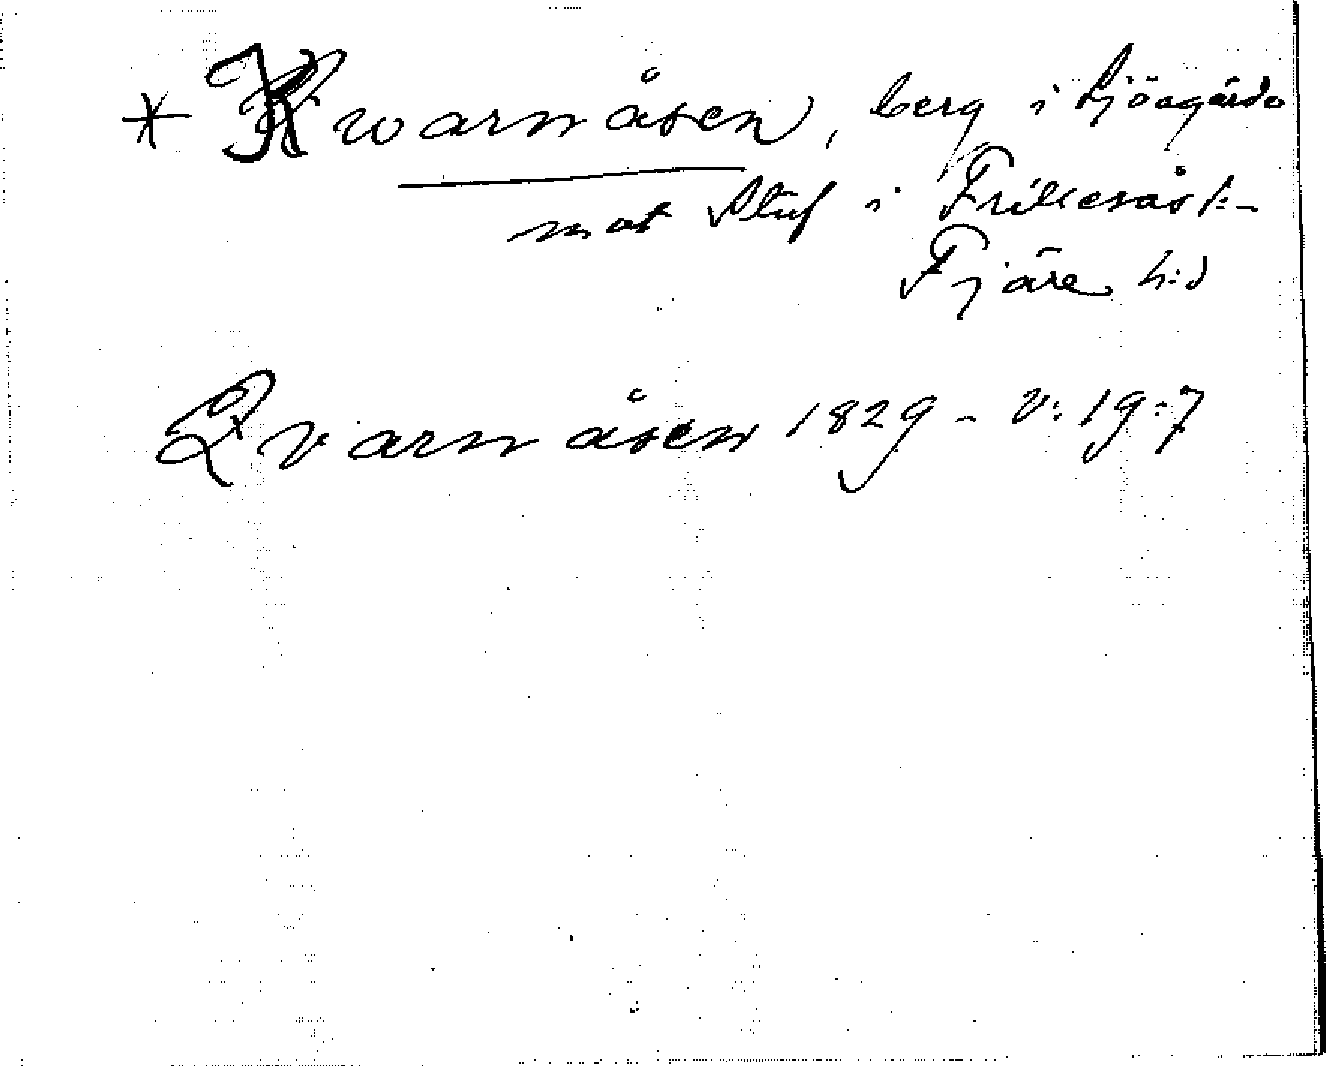 * Kvarnåsen, berg i Sjöagärde
mot Stuf i Frillesås s:n
Fjäre h:d
Qvarnåsen 1829 - V: 19:7